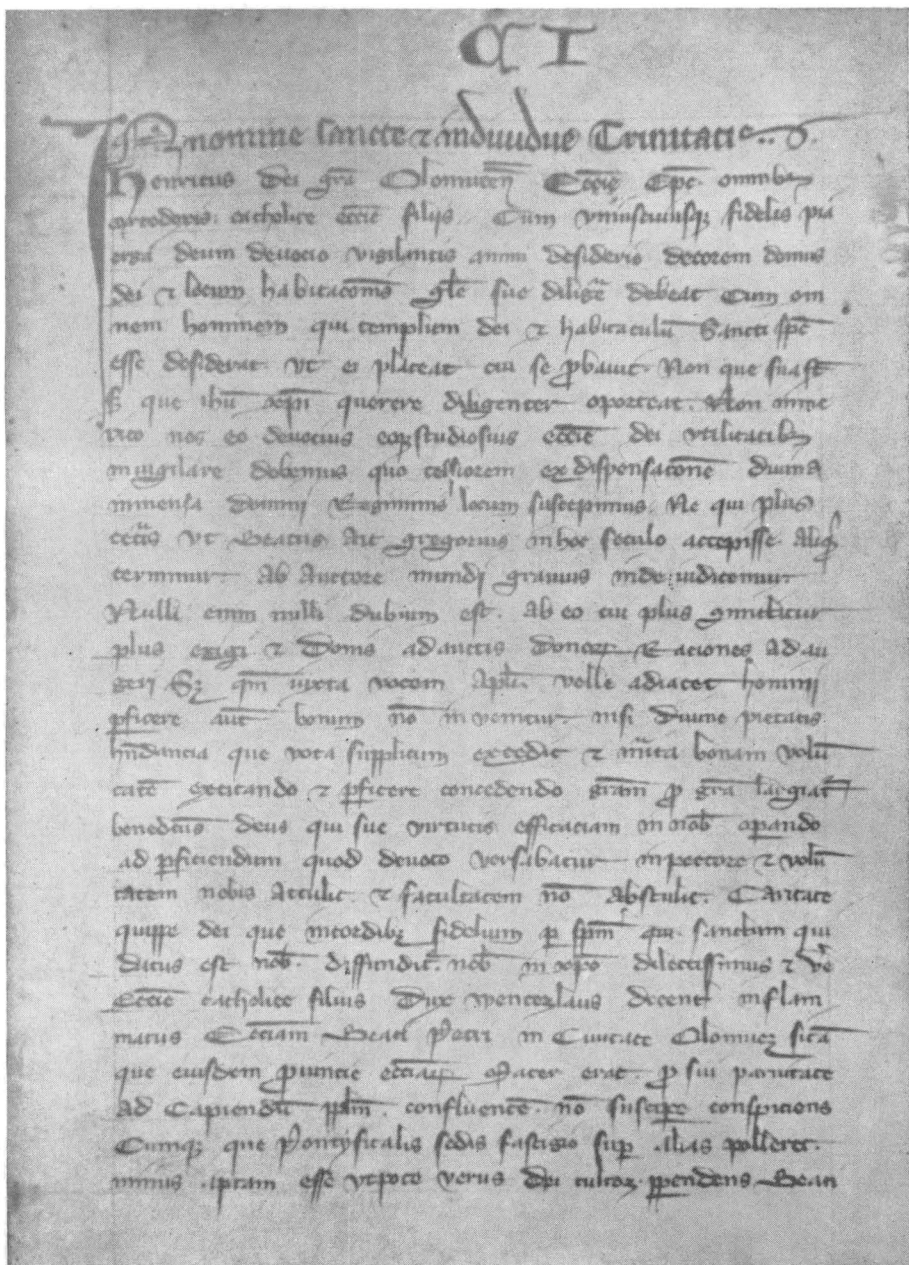 CI
In nomine sancte et individue Trinitatis
Henricus dei gra Olomucen Eccie Epc omnibus
ortodoxis catholice eccie filijs Cum vniuscuiusq fidelis pia
erga deum deuocio vigilantis animi desiderio decorem domus
dei et locum habitaconis gle sue diligere debeat Cum om
nem hominem qui templum dei et habitaculu Sancti spc
esse desiderat vt ei placeat cui se probauit Non que sua st
s que ihu xpi querere diligenter oporteat Non
nos eo deuocius studiosius eccie dei vtilitatibus
inuigilare debemus quo celsiorem ex dispensacone diuina
domini Regiminis locum suscepimus Ne qui plus
ceteris vt Beatus Ait gregorius in hoc seculo accepisse Aliqd
Ab Auctore mundi grauius inde iudicemur
Nulli enim dubium est Ab eo cui plus committitur
plus exigi et Donis adauctis Raciones Adau
geri S qm iuxta vocem Apli velle adiacet homini
pficere aut bonum no inuenitur nisi diuine pietatis
que vota supplicum excedit et bonam volu
tate excitando et pficere concedendo gram p gra largiat
benedctus deus qui sue virtutis efficaciam in nob opando
ad pficiendum quod deuoto versabatur in pectore et volu
tatem nobis Attulit et facultatem no Abstulit Caritate
quippe dei que in cordibus fidelium p spm qui sanctum qui
datus est nob diffundit nob in xpo dilectissimus et
Eccie catholice filius Dux wenczlaus decent inflam
matus Ecciam Beati Petri in Ciuitate Olomucz sita
que eiusdem puincie ecciaru Mater erat p sui paruitate
Ad Capiendu pplm confluente no suscipe conspiciens
Cumq que Pontyficalis sedis fastigio sup alias polleret
minus aptam esse vtpote verus dei cultor ppendens Beati